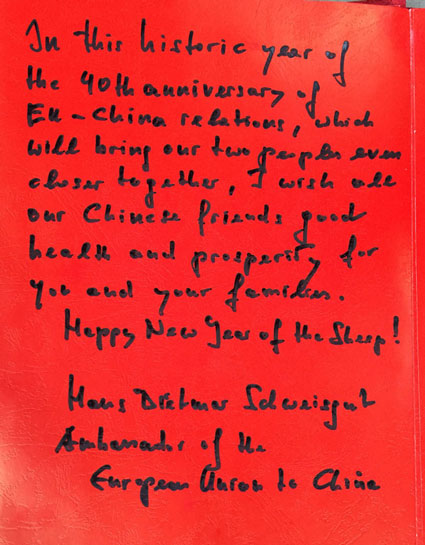 In this historic year of
the 40th anniversary of
EU-China relations, which
will bring our two peoples even
closer together, I wish all
our Chinese friends good
health and prosperity for
you and your families.
Happy New Year of the Sheep!
Hans Dietmar Schweisgut
Ambassador of the
European Union to China